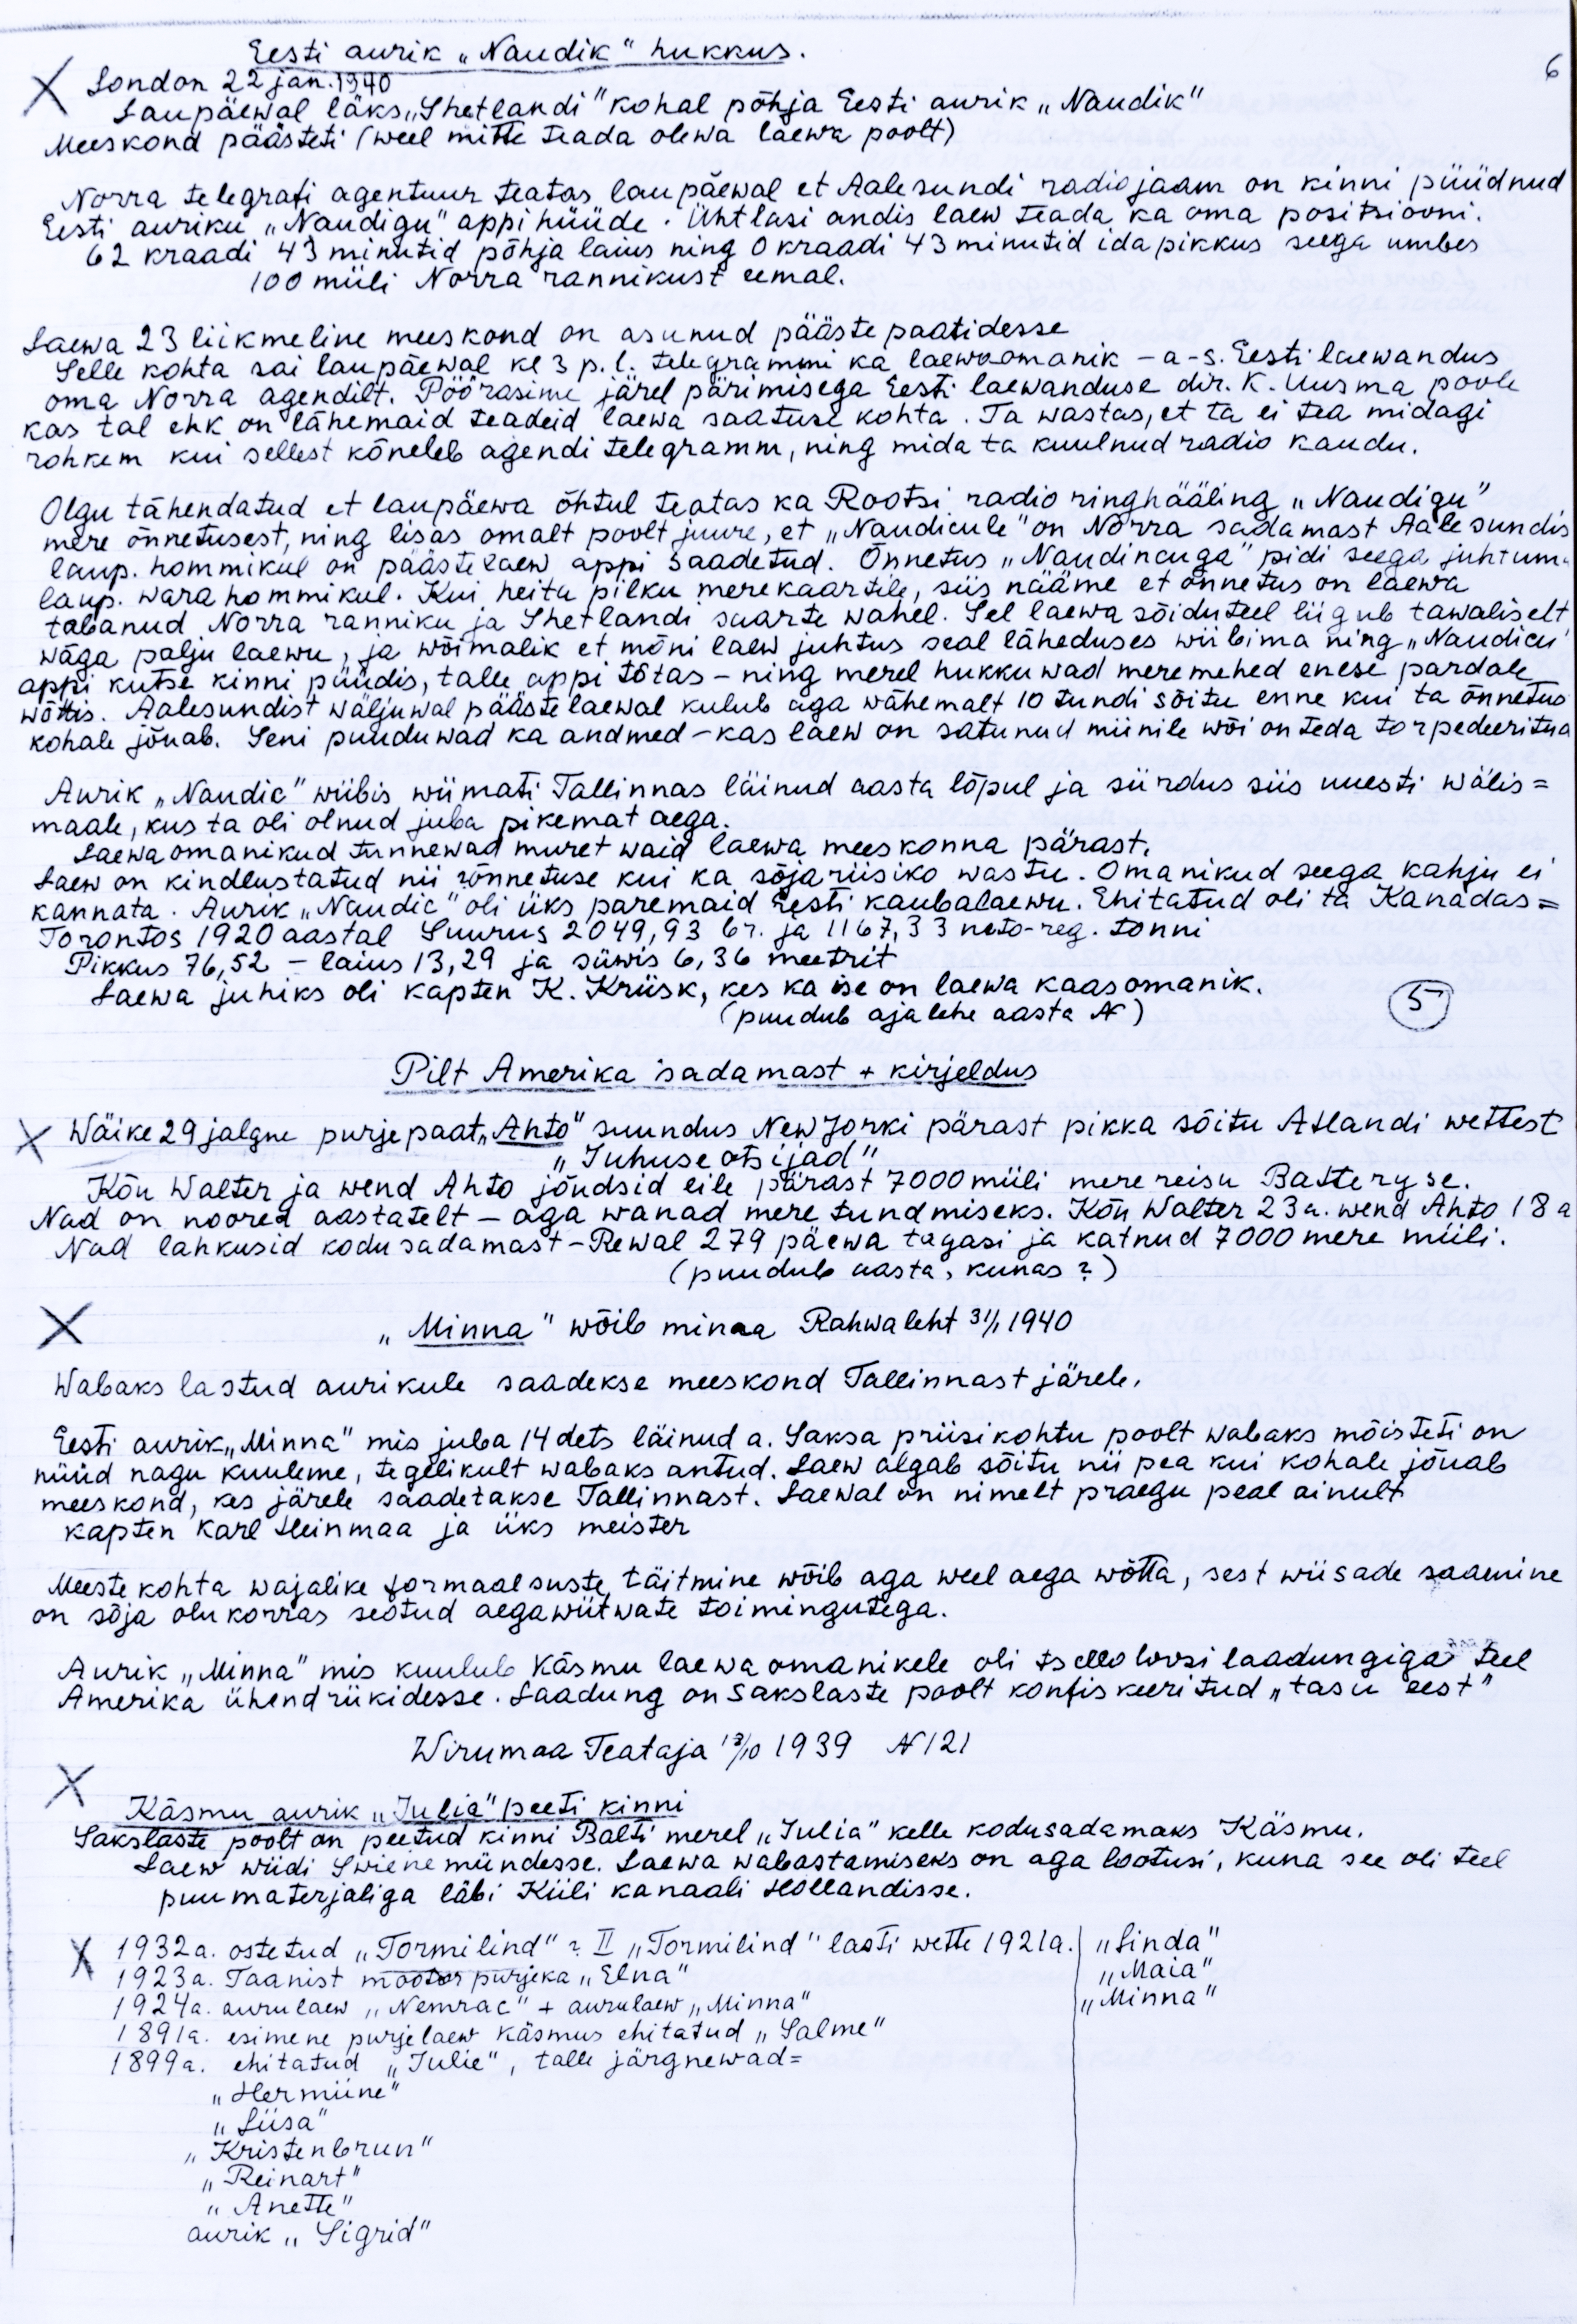 6
Eesti aurik „Naudik" hukkus.
X London 22 jan. 1940
Laupäewal läks „Shetlandi" kohal põhja Eesti aurik „Naudik"
Meeskond päästeti (weel mitte teada olewa laewa poolt)
Norra telegrafi agentuur teatas laupäewal et Aalesundi radiojaam on kinni püüdnud
Eesti auriku „Naudigu" appi hüüde. Ühtlasi andis laew teada ka oma positsiooni.
62 kraadi 43 minutid põhja laius ning 0 kraadi 43 minutid ida pikkus seega umbes
100 miili Norra rannikust eemal.
Laewa 23 liikmeline meeskond on asunud pääste paatidesse
Selle kohta sai laupäewal kl 3 p. l. telegrammi ka laewaomanik – a-s. Eesti laewandus
oma Norra agendilt. Pöörasime järel pärimisega Eesti laewanduse dir. K. Uusma poole
kas tal ehk on lähemaid teadeid laewa saatuse kohta. Ta wastas, et ta ei tea midagi
rohkem kui sellest kõneleb agendi telegramm, ning mida ta kuulnud radio kaudu.
Olgu tähendatud et laupäewa õhtul teatas ka Rootsi radio ringhääling „Naudigu"
mere õnnetusest, ning lisas omalt poolt juure, et „Naudicule" on Norra sadamast Aalesundis
laup. hommikul on päästelaew appi saadetud. Õnnetus „Naudincuga" pidi seega juhtuma
laup. wara hommikul. Kui heita pilku merekaartile, siis nääme et õnnetus on laewa
tabanud Norra ranniku ja Shetlandi saarte wahel. Sel laewa sõiduteel liigub tawaliselt
wäga palju laewu, ja wõimalik et mõni laew juhtus seal läheduses wiibima ning „Naudicu"
appi kutse kinni püüdis, talle appi tõtas – ning merel hukkuwad meremehed enese pardale
wõttis. Aalesundist wäljuwal päästelaewal kulub aga wähemalt 10 tundi sõitu enne kui ta õnnetus
kohale jõuab. Seni puuduwad ka andmed – kas laew on satunud miinile wõi on teda torpedeeritud
Aurik „Naudic" wiibis wiimati Tallinnas läinud aasta lõpul ja siirdus siis uuesti wälis=
maale, kus ta oli olnud juba pikemat aega.
Laewaomanikud tunnewad muret waid laewa meeskonna pärast.
Laew on kindlustatud nii õnnetuse kui ka sõjariisiko wastu. Omanikud seega kahju ei
kannata. Aurik „Naudic" oli üks paremaid Eesti kaubalaewu. Ehitatud oli ta Kanadas=
Torontos 1920 aastal Suurus 2049,93 br. ja 1167,33 neto-reg. tonni
Pikkus 76,52 – laius 13,29 ja süwis 6,36 meetrit
Laewa juhiks oli kapten K. Kriisk, kes ka ise on laewa kaasomanik.
(puudub ajalehe aasta №)
5
Pilt Amerika sadamast + kirjeldus
X Wäike 29 jalgne purjepaat „Ahto" suundus New Jorki pärast pikka sõitu Atlandi wettest
„Juhuse otsijad"
Kõu Walter ja wend Ahto jõudsid eile pärast 7000 miili merereisu Batteryse.
Nad on noored aastatelt – aga wanad mere tundmiseks. Kõu Walter 23 a. wend Ahto 18 a
Nad lahkusid kodusadamast – Rewal 279 päewa tagasi ja katnud 7000 mere miili.
(puudub aasta, kunas?)
X „Minna" wõib minna Rahwaleht 31/1 1940
Wabaks lastud aurikule saadekse meeskond Tallinnast järele.
Eesti aurik „Minna" mis juba 14 dets läinud a. Saksa priisikohtu poolt wabaks mõisteti on
nüüd nagu kuuleme, tegelikult wabaks antud. Laew algab sõitu nii pea kui kohale jõuab
meeskond, kes järele saadetakse Tallinnast. Laewal on nimelt praegu peal ainult
kapten Karl Heinmaa ja üks meister
Meeste kohta wajalike formaalsuste täitmine wõib aga weel aega wõtta, sest wiisade saamine
on sõja olukorras seotud aegawiitwate toimingutega.
Aurik „Minna" mis kuulub Käsmu laewaomanikele oli tselloloosi laadungiga teel
Amerika ühendriikidesse. Laadung on sakslaste poolt konfiskeeritud „tasu eest"
Wirumaa Teataja 1939 № 121
X Käsmu aurik „Julia" peeti kinni
Sakslaste poolt on peetud kinni Balti merel „Julia" kelle kodusadamaks Käsmu.
Laew wiidi Swienemündesse. Laewa wabastamiseks on aga lootusi, kuna see oli teel
puumaterjaliga läbi Kiili kanaali Hollandisse.
X 1932a. ostetud „Tormilind" ? II „Tormilind" lasti wette 1921a. „Linda"
1923a. Taanist mootor purjeka „Elna" „Maia"
1924a. aurulaew „Nemrac" + aurulaew „Minna" „Minna"
1891a. esimene purjelaew Käsmus ehitatud „Salme"
1899a. ehitatud „Julie", talle järgnewad=
„Hermiine"
„Liisa"
„Kristenbrun"
„Reinart"
„Anette"
aurik „Sigrid"